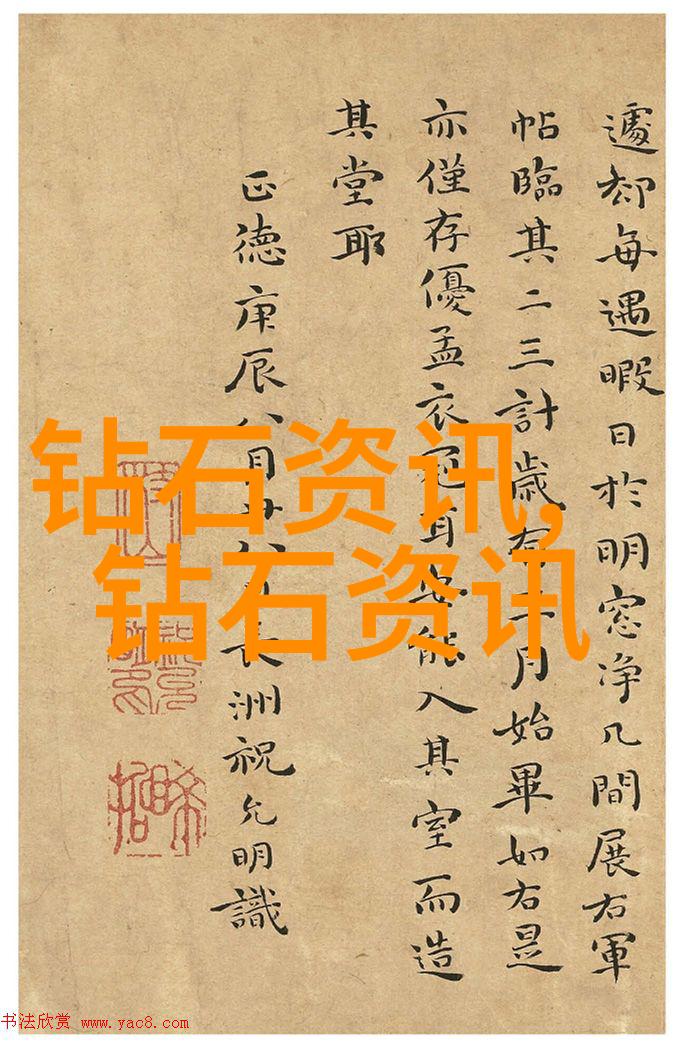 遽却每遇暇日於明窓净几間展右軍
帖臨其二三計歳有二月始畢如右是
亦僅存優孟衣冠耳安能入其室而造
其堂耶
正德庚辰八月廿八日長洲祝允明識
钻石资讯,
钻石资讯
书法欣赏 www.yac8.com